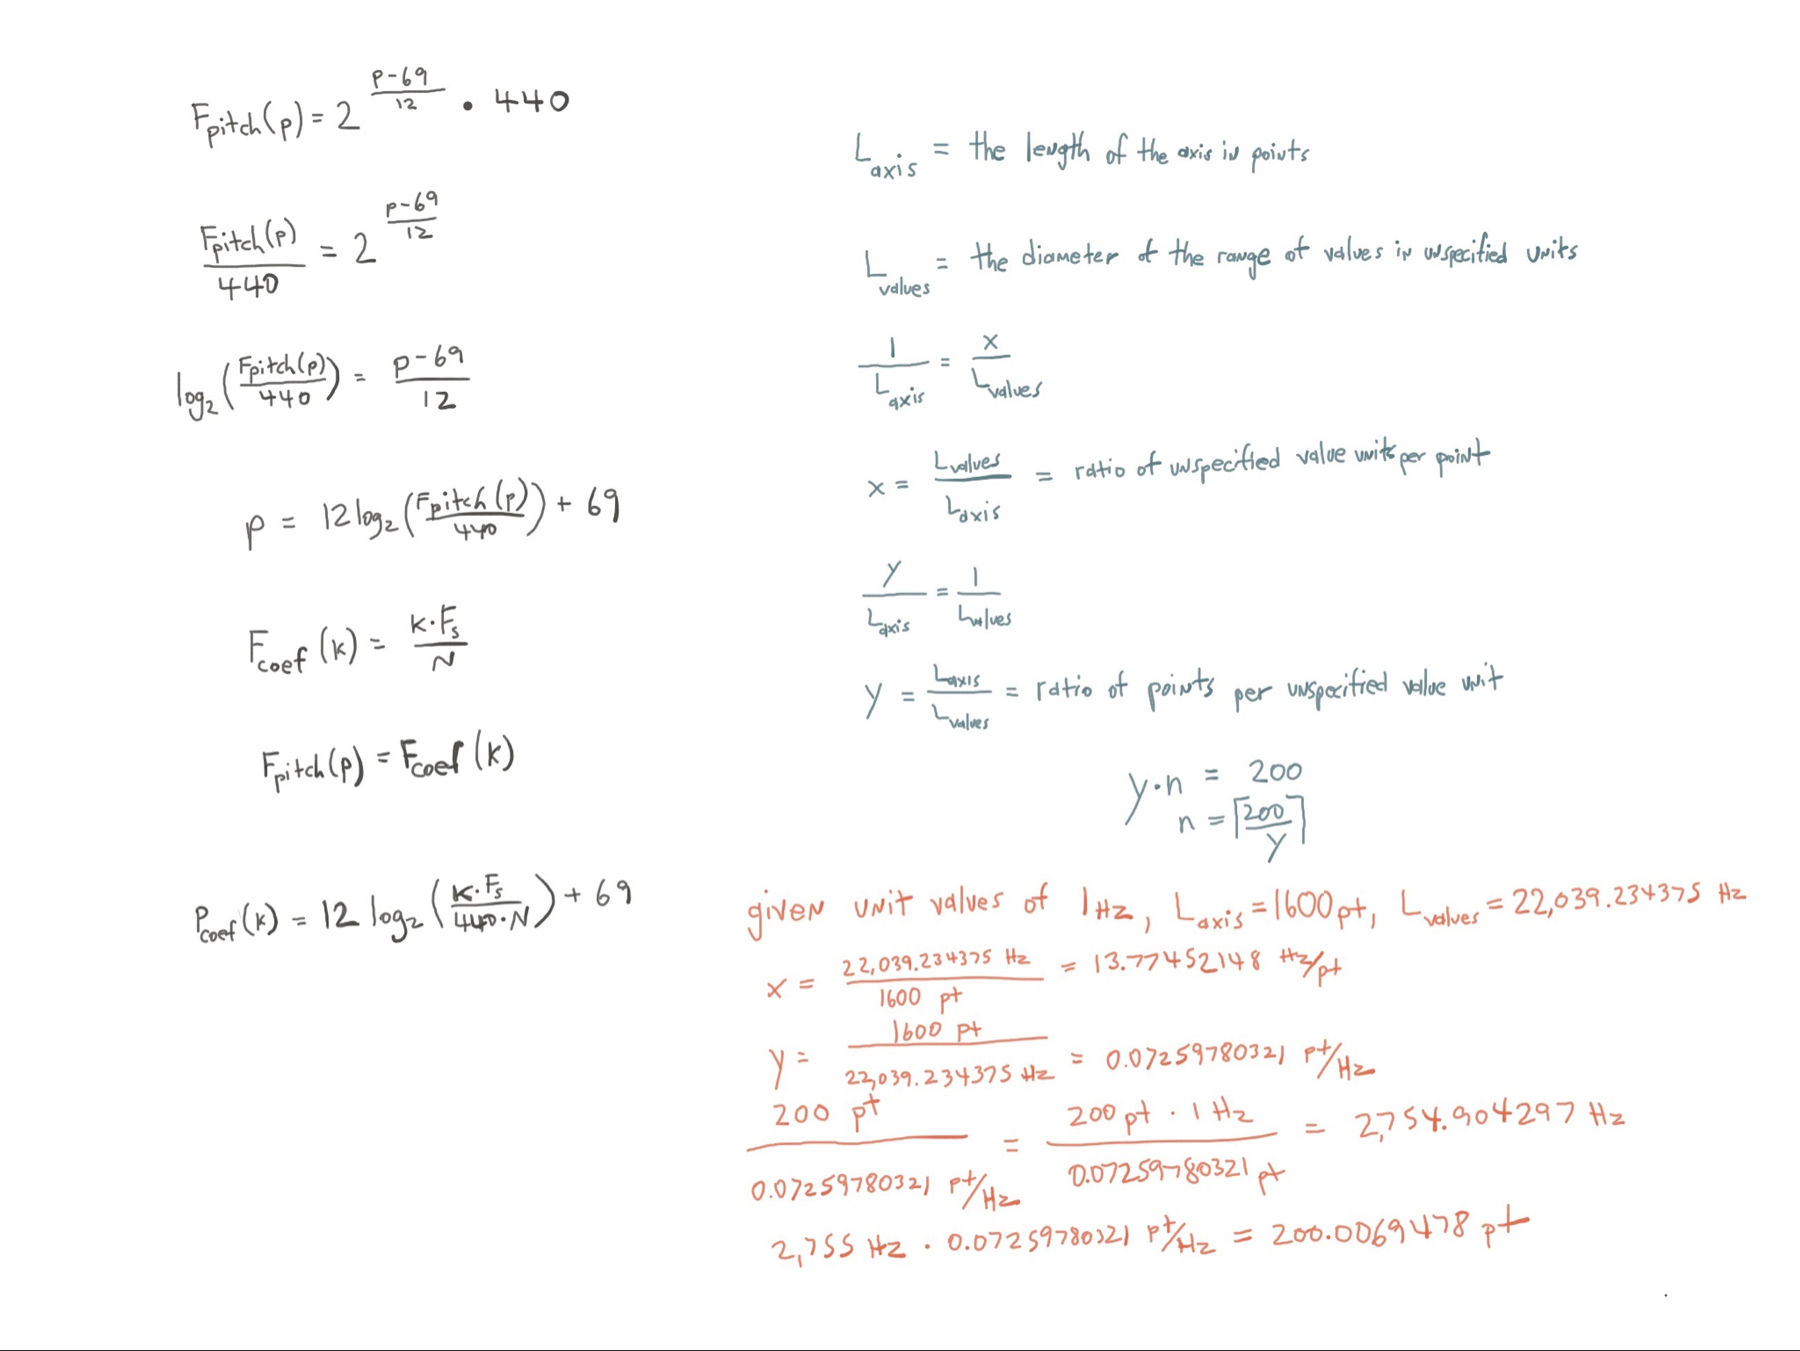 F_pitch(p) = 2^((p-69)/12) • 440
F_pitch(p)/440 = 2^((p-69)/12)
log₂(F_pitch(p)/440) = (p-69)/12
p = 12 log₂(F_pitch(p)/440) + 69
F_coef(k) = k·F_s/N
F_pitch(p) = F_coef(k)
P_coef(k) = 12 log₂(k·F_s/440·N) + 69
L_axis = the length of the axis in points
L_values = the diameter of the range of values in unspecified units
1/L_axis = x/L_values
x = L_values/L_axis = ratio of unspecified value units per point
y/L_axis = 1/L_values
y = L_axis/L_values = ratio of points per unspecified value unit
y·n = 200
n = ⌈200/y⌉
given unit values of 1Hz, L_axis = 1600pt, L_values = 22,039.234375 Hz
x = 22,039.234375 Hz/1600 pt = 13.77452148 Hz/pt
y = 1600 pt/22,039.234375 Hz = 0.07259780321 pt/Hz
200 pt/0.07259780321 pt/Hz = 200pt · 1 Hz/0.07259780321 pt = 2,754.904297 Hz
2,755 Hz · 0.07259780321 pt/Hz = 200.0069478 pt